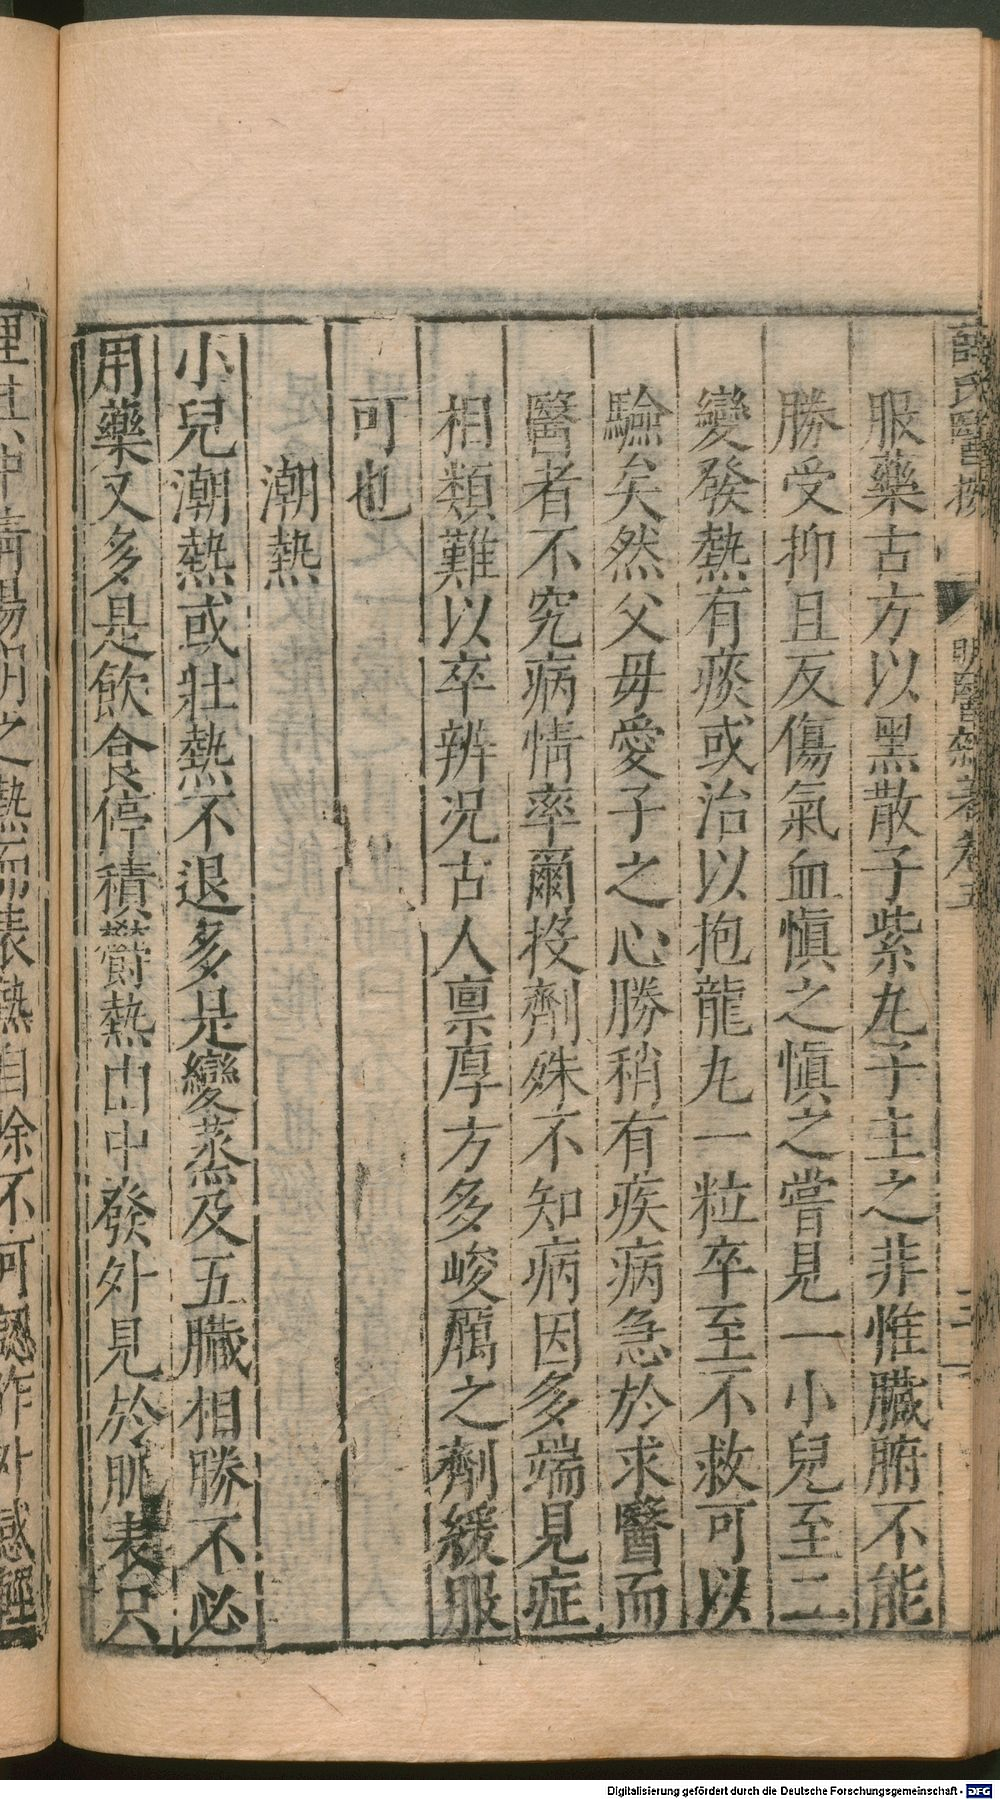 薛氏醫按 明醫雜著卷五 三
服藥古方以黑散子紫丸子主之非惟臟腑不能
勝受抑且反傷氣血愼之愼之嘗見一小兒至二
變發熱有痰或治以抱龍丸一粒卒至不救可以
驗矣然父母愛子之心勝稍有疾病急於求醫而
醫者不究病情率爾投劑殊不知病因多端見症
相類難以卒辨况古人禀厚方多峻厲之劑緩服
可也
潮熱
小兒潮熱或壯熱不退多是變蒸及五臟相勝不必
用藥又多是飲食停積欝熱由中發外見於肌表只
理其中清陽明之熱而表熱自除不可認作外感輕
Digitalisierung gefördert durch die Deutsche Forschungsgemeinschaft - DFG